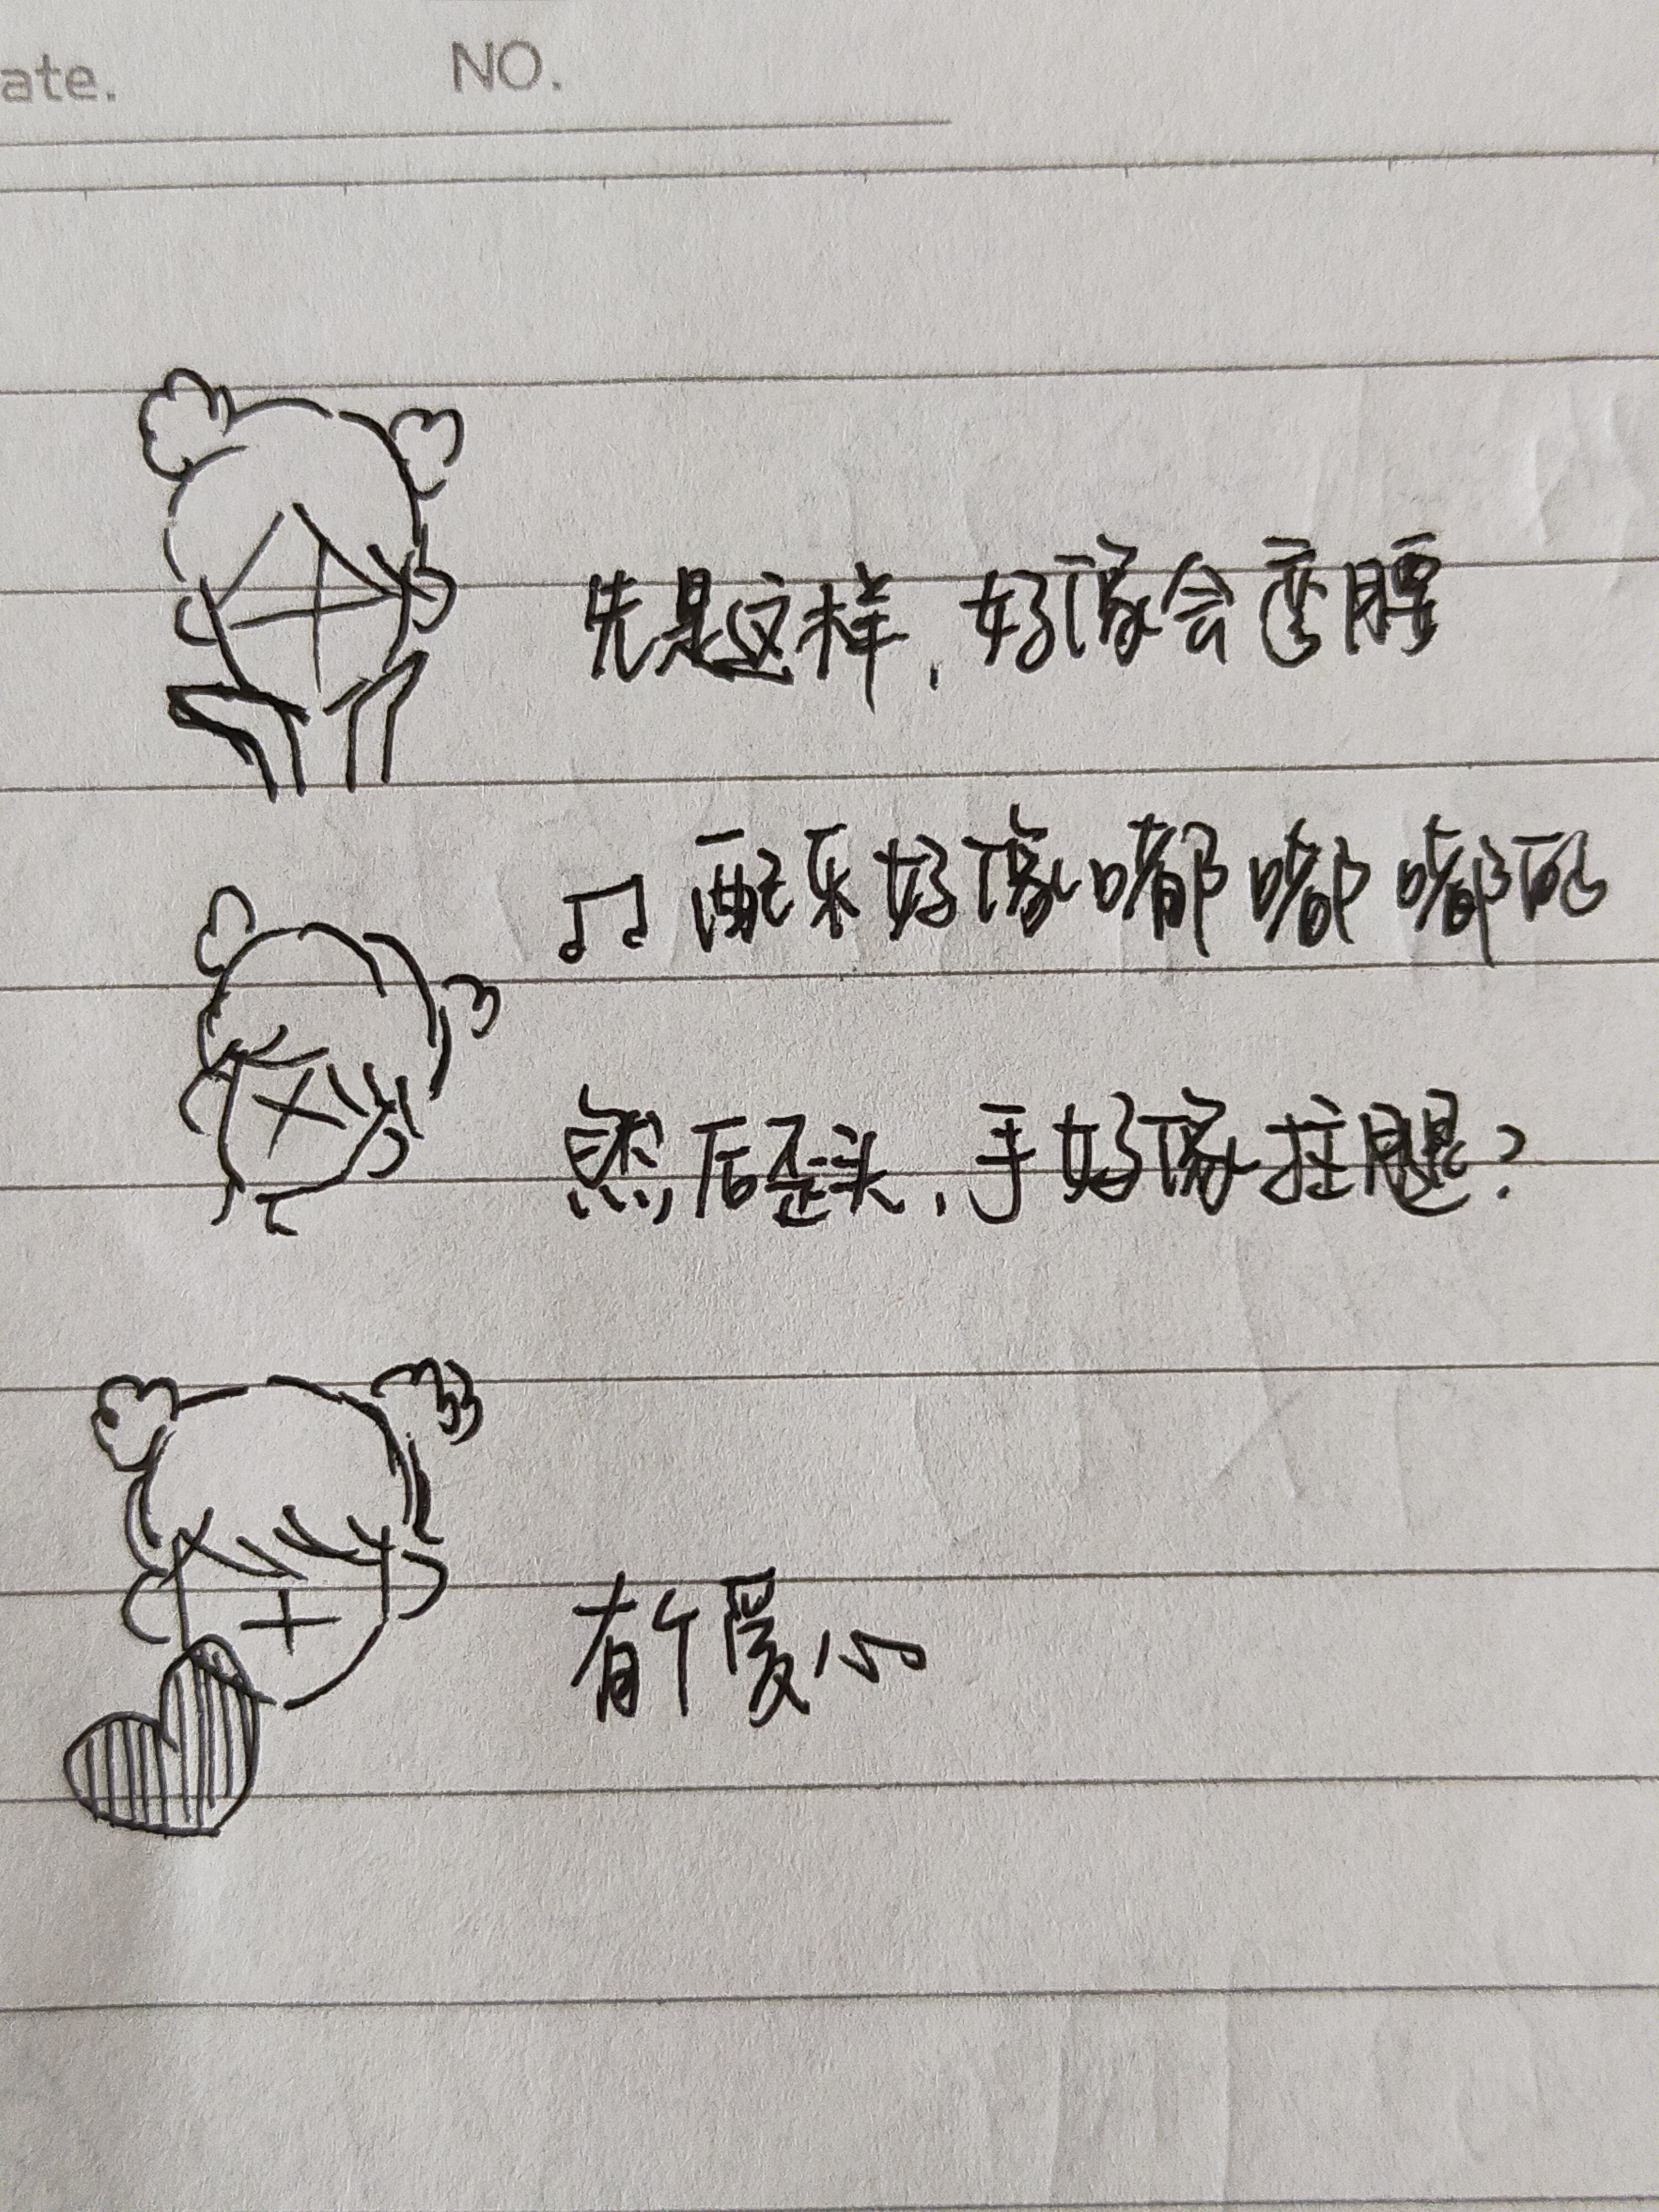 ate. NO.
先是这样,好像会弯腰
♫配乐好像嘟嘟嘟配
然后歪头,手好像拄腿?
有个爱心